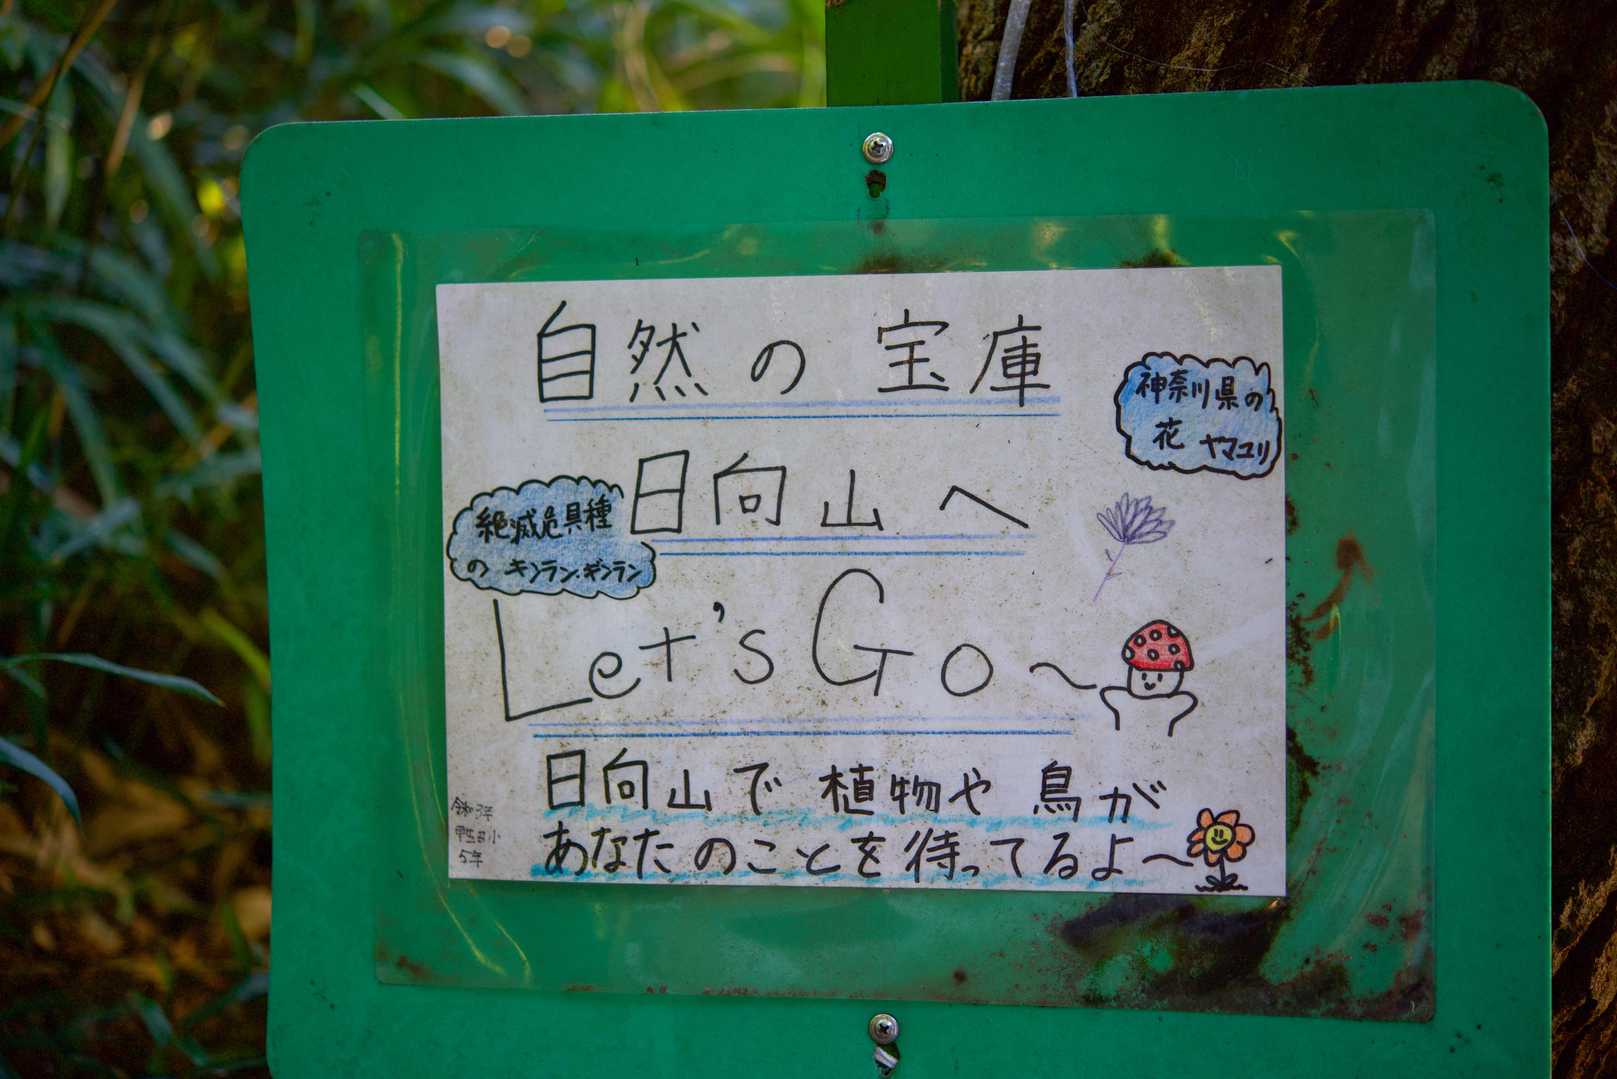 自然の宝庫
神奈川県の
花 ヤマユリ
日向山へ
絶滅危具種
の キンラン・ギンラン
Let's Go〜
日向山で 植物や 鳥が
あなたのことを待ってるよ〜
5年